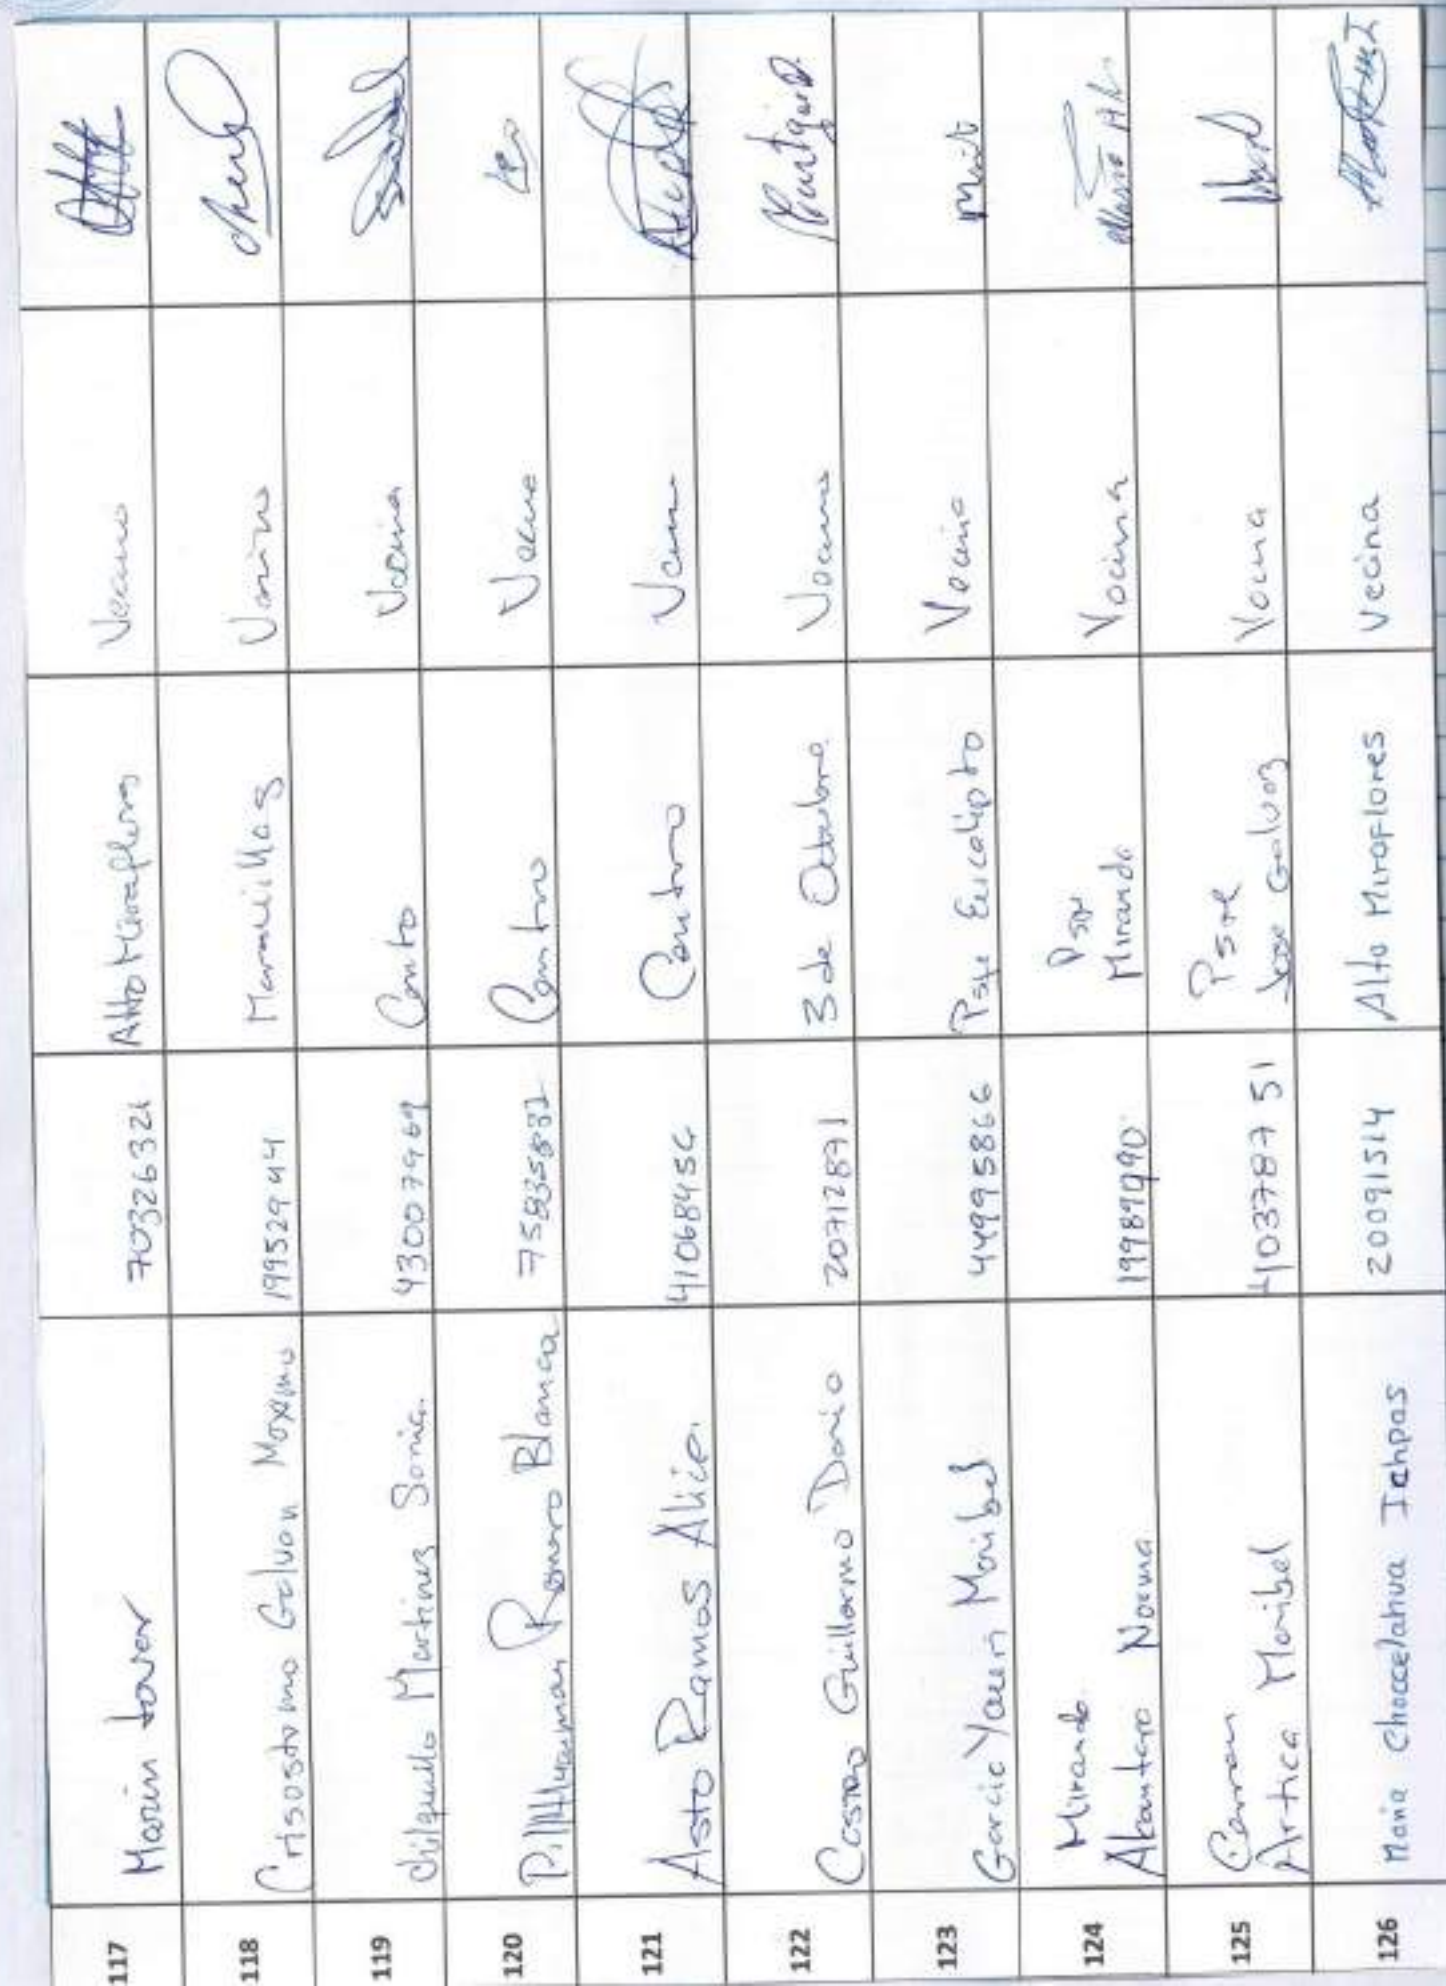 117 Marin tover 70326321 Alto Miraflores Vecino
118 Crisostomo Galvan Maximo 19952944 Maravillas Vecino
119 chilquillo Martinez Sonia 43007969 Centro Vecina
120 Romero Blanca Centro Vecina
121 Asto Ramos Alicia 41068456 Centro
122 Castro Guillermo Dario 20712871 3 de Octubre Vecino
123 Garcia Yauri Maribel 44995866 Psje Eucalipto Vecina Marit
124 Miranda
Alcantara Norma Psje
Miranda Vecina
125
Artica Maribel 40378751 Psje
Jose Galvez Vecina
126 Maria Choccelahua Ichpas 20091514 Alto Miraflores Vecina